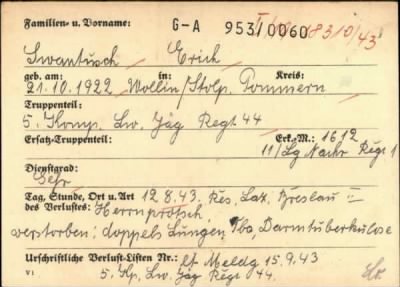 Familien- u. Vorname: G-A 953/0060
Swantusch Erich
geb. am: in: Kreis:
21.10.1922 Wollin/Stolp. Pommern
Truppenteil:
5. Komp. Lw. Jäg Regt. 44
Ersatz-Truppenteil: Erk.-M.: 1612
11/Lg Nachr Regt 1
Dienstgrad:
Gefr.
Tag, Stunde, Ort u. Art 12.8.43. Res. Laz. Breslau II
des Verlustes: Herrnprotsch.
verstorben: doppels. Lungen Tbc, Darmtuberkulose
Urschriftliche Verlust-Listen Nr.: lt Meldg 15.9.43
V 1 5. Kp. Lw. Jäg Regt 44.